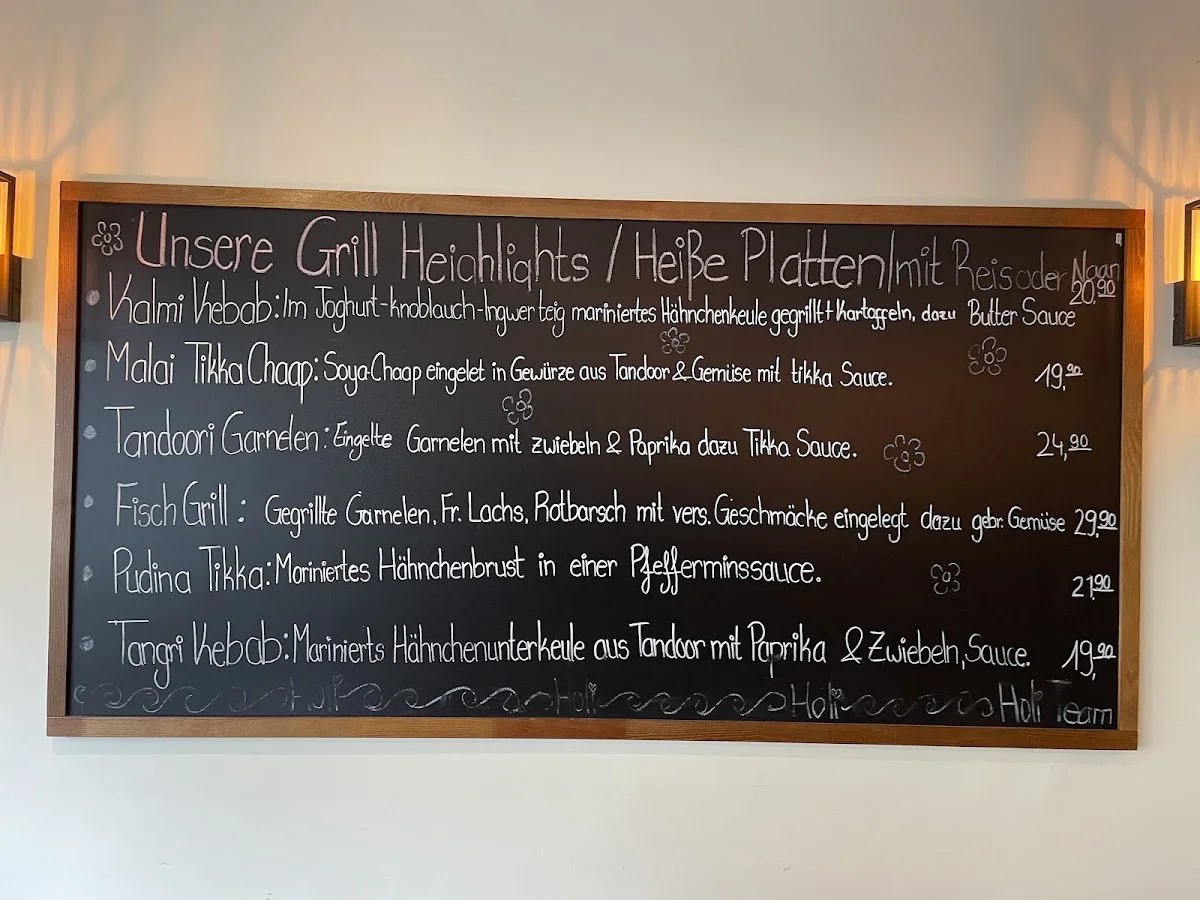 Unsere Grill Heighlights / Heiße Platten/mit Reis oder Naan
Kalmi Kebab: Im Joghurt-knoblauch-Ingwer teig mariniertes Hähnchenkeule gegrillt + Kartoffeln, dazu Butter Sauce 20,90
Malai Tikka Chaap: Soya-Chaap eingelet in Gewürze aus Tandoor & Gemüse mit tikka Sauce. 19,90
Tandoori Garnelen: Eingelte Garnelen mit zwiebeln & Paprika dazu Tikka Sauce. 24,90
Fisch Grill: Gegrillte Garnelen, Fr. Lachs, Rotbarsch mit vers. Geschmäcke eingelegt dazu gebr. Gemüse 29,90
Pudina Tikka: Mariniertes Hähnchenbrust in einer Pfefferminssauce. 21,90
Tangri Kebab: Marinierts Hähnchenunterkeule aus Tandoor mit Paprika & Zwiebeln, Sauce. 19,90
Holi Holi Holi Holi Team